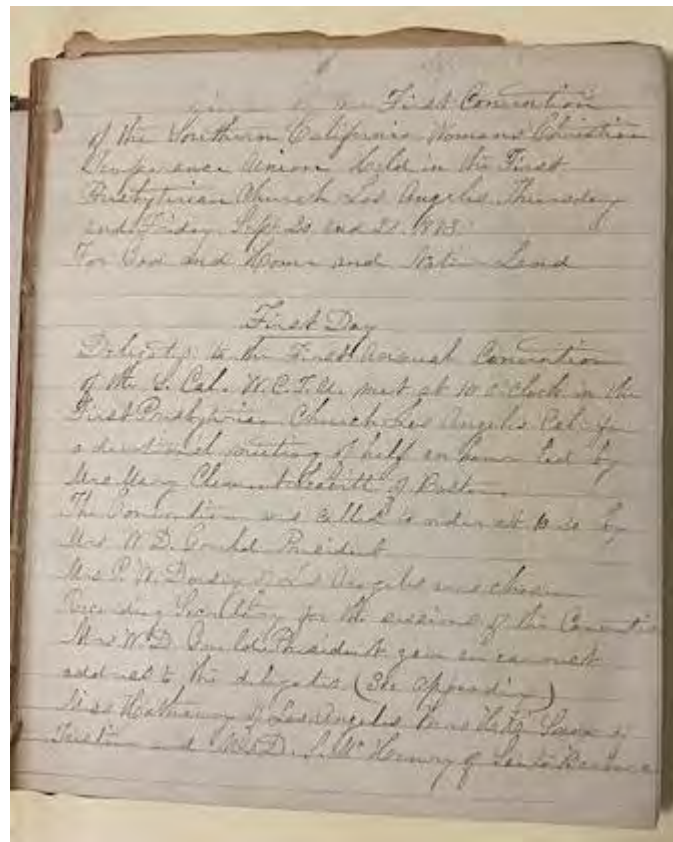 First Convention
of the Southern California Womans Christian
Temperance Union held in the First
Presbyterian Church Los Angeles Thursday
and Friday Sept 20 and 21. 1883.
For God and Home and Native Land
First Day
Delegates to the First Annual Convention
of the S. Cal. W.C.T.U. met at 10 o'clock in the
First Presbyterian Church Los Angeles Cal. for
a devotional meeting of half an hour led by
Mrs Mary Clement Leavitt of Boston
The Convention was called to order at 10.30 by
Mrs W.D. Gould President
Mrs P. W. Dorsey of Los Angeles was chosen
Recording Secretary for the sessions of the Convention
Mrs W.D. Gould President gave an earnest
address to the delegates (See appendix)
Hathaway of Los Angeles
Tustin and Mrs D. S. McHenry of Santa